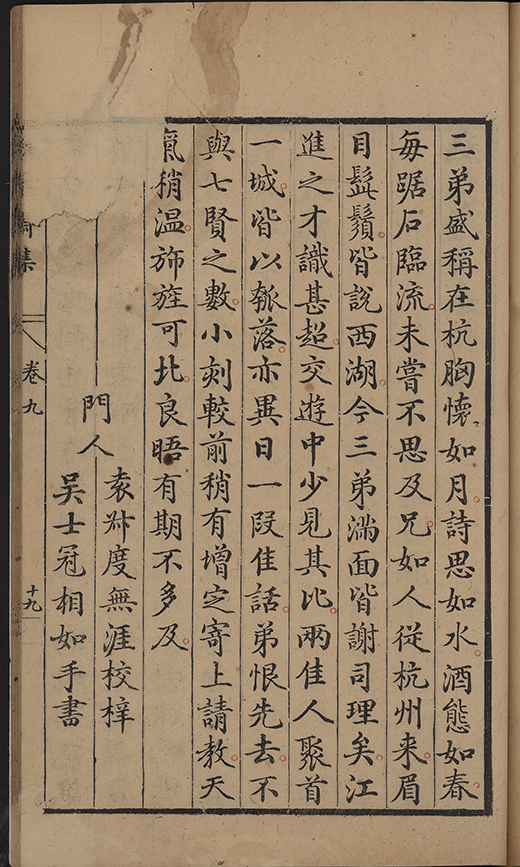 三弟盛稱在杭胸懷如月詩思如水酒態如春
每踞石臨流未嘗不思及兄如人從杭州来眉
目髭鬚皆說西湖今三弟湍面皆謝司理矣江
進之才識甚超交遊中少見其比兩佳人聚首
一城皆以瓠落亦異日一叚佳話弟恨先去不
與七賢之數小刻較前稍有增定寄上請教天
氣稍温斾旌可北良晤有期不多及
門人
袁叔度無涯校梓
吴士冠相如手書
集
卷九
十九